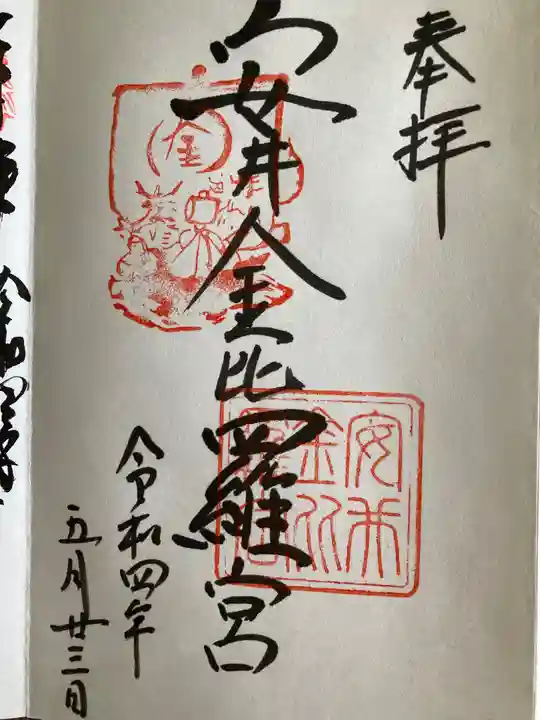 奉拝
安井金比羅宮
安井
金比
羅宮
金
令和四年
五月廿三日